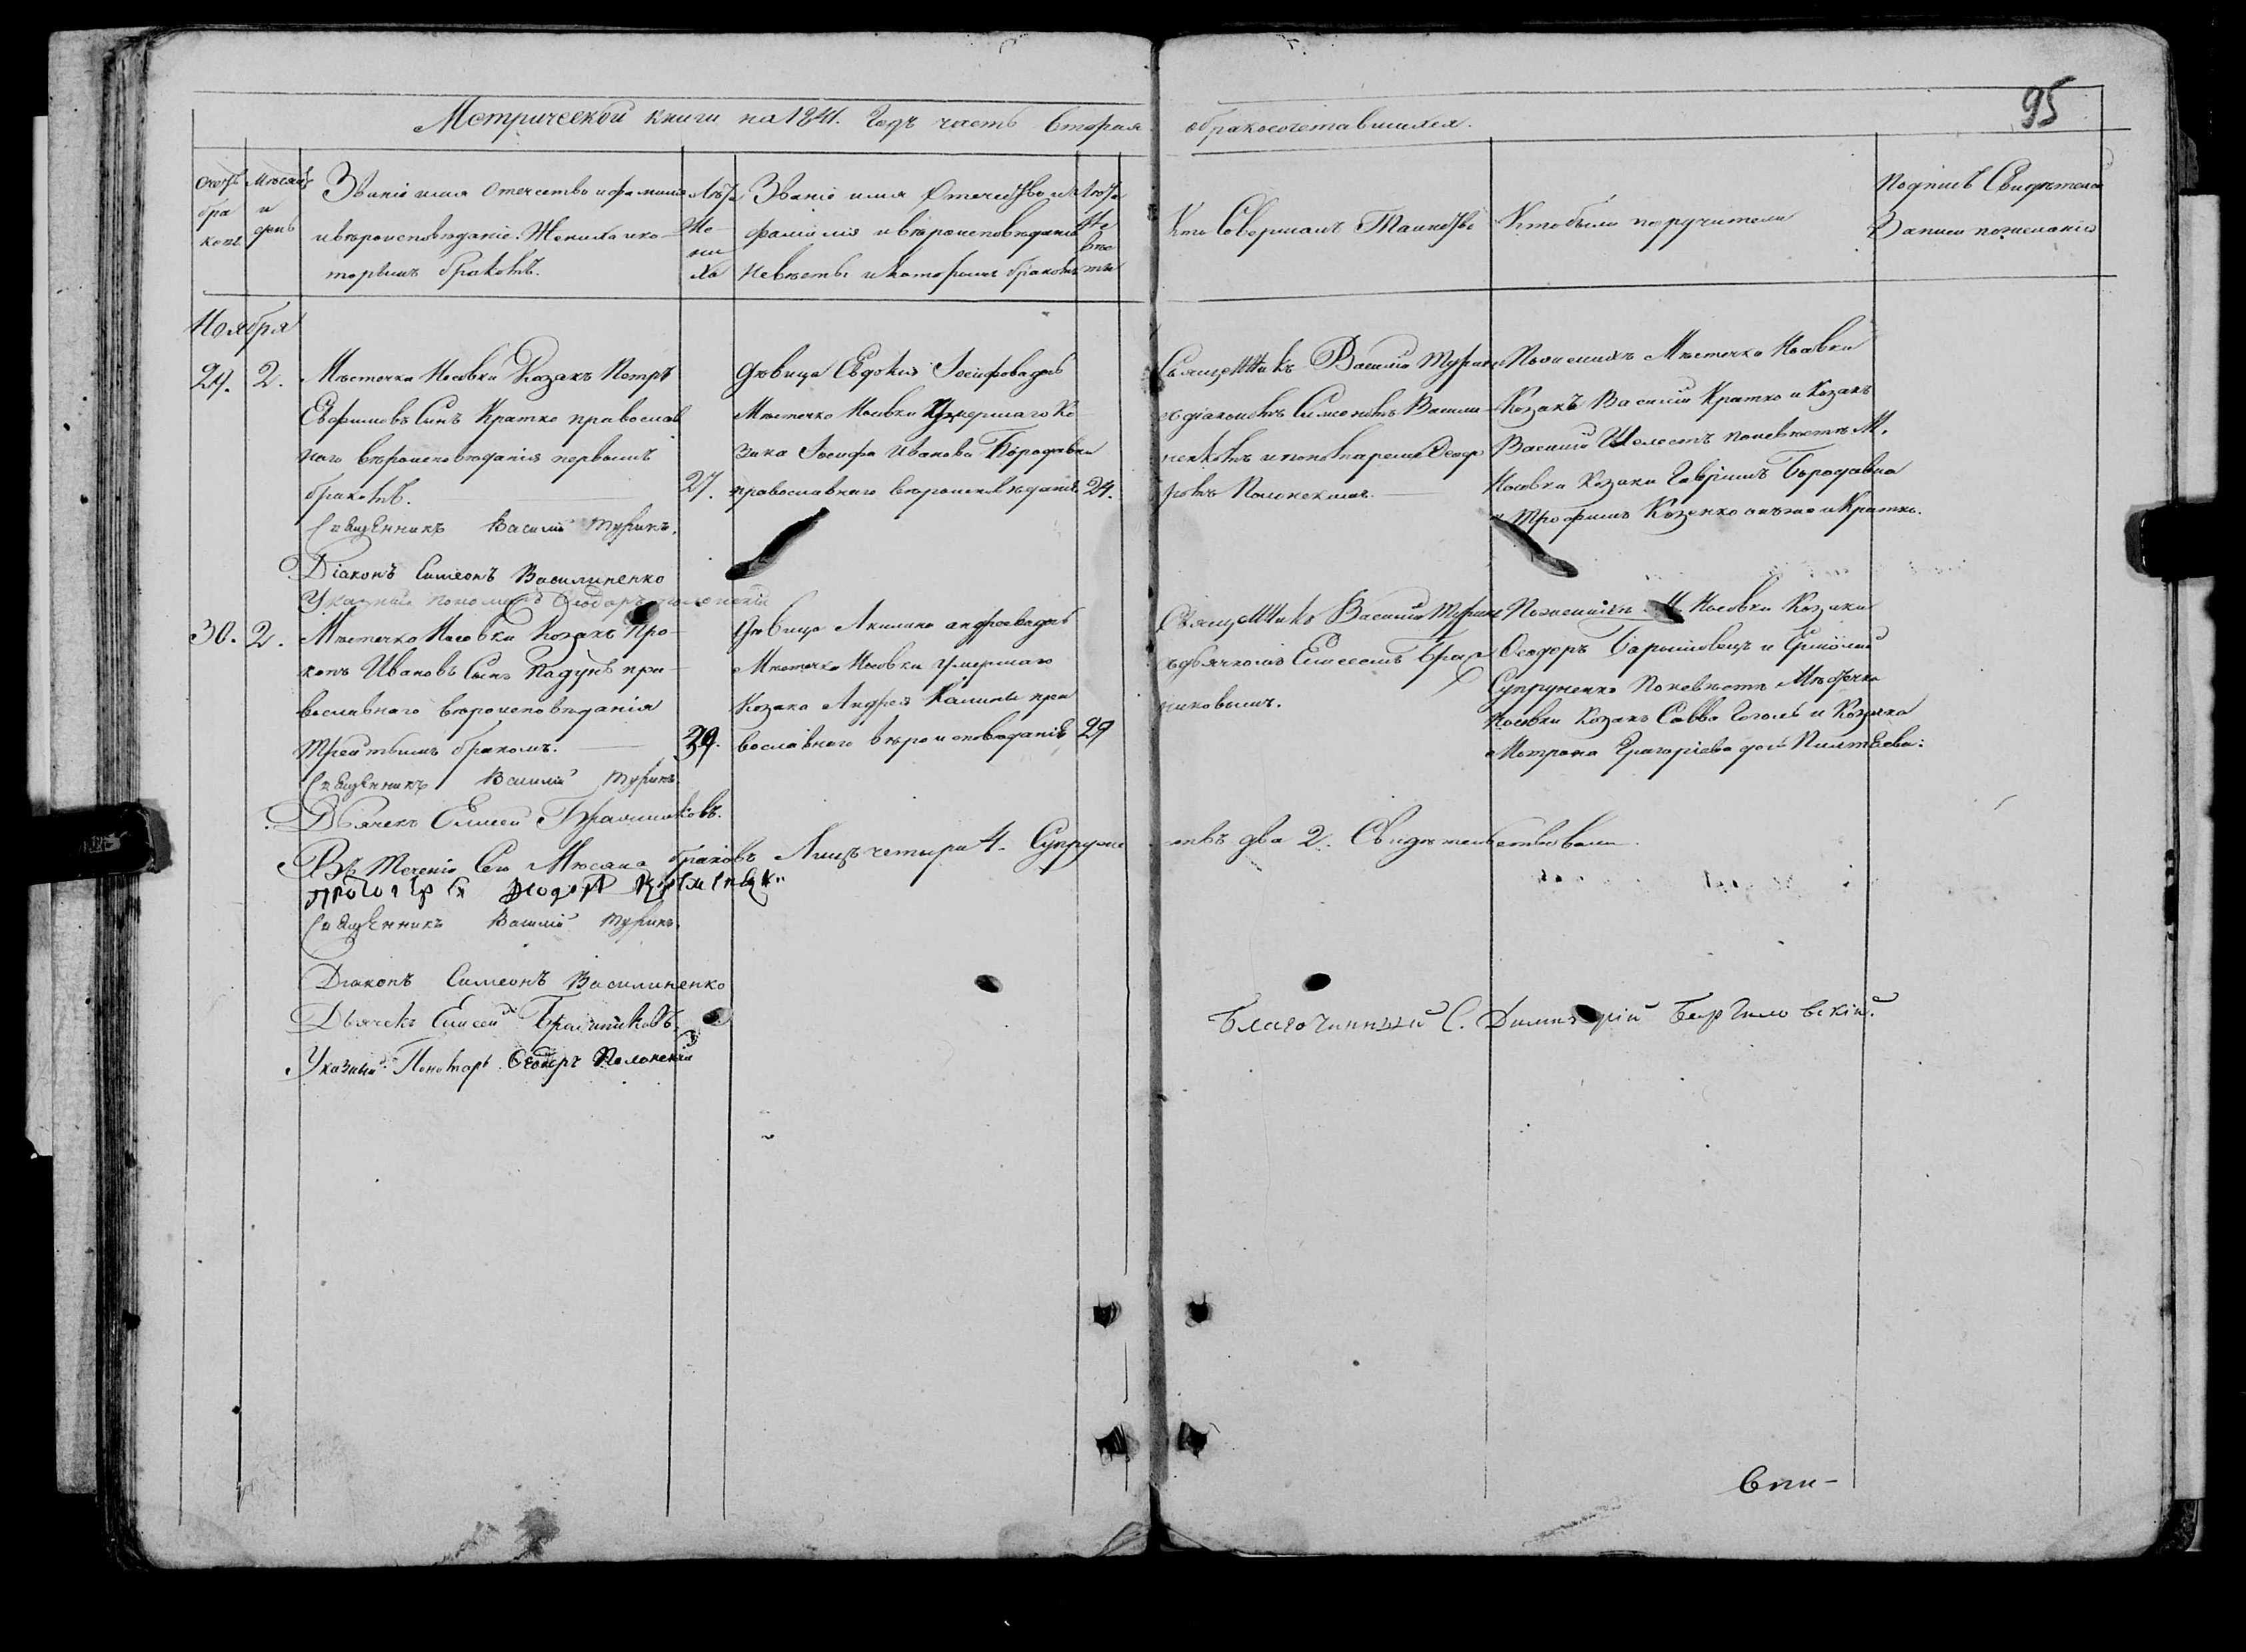 95
Метрической книги на 1841. Годъ часть вторая обракосочетавшихся.
Счетъ браковъ
Мѣсяцъ и день
Званіе имя Отечество и фамилія
ивѣроисповѣданіе. Жениха ико-
торымъ бракомъ.
Лѣта Жениха
Званіе имя Отечество и
фамилія ивѣроисповѣданіе
Невѣсты икоторымъ бракомъ
Лѣта Невѣсты
Кто Совершалъ Таинство
Кто были поручители
Подпись Свидѣтелей
Записи пожеланію
Ноября
29. 2.
Мѣстечка Носовки Козакъ Петръ
Евфимовъ Сынъ Кратко православ
наго вѣроисповѣданія первымъ
бракомъ. 27.
дѣвица Евдокія Іосифова дочь
Мѣстечка Носовки Умершаго Ко
зака Іосифа Иванова Бородавки
православнаго вѣроисповѣданія 24.
Священникъ Василій Турикъ
сдіакономъ Симеономъ Васили-
ненкомъ и пономаремъ Феодо
ромъ Полонскимъ.
Поженихѣ Мѣстечка Носовки
Козакъ Василій Кратко и Козакъ
Василій Шелестъ поневѣстѣ М.
Носовки Козаки Гавріилъ Бородавка
и Трофимъ Козенко онъже и Кратко.
Священникъ Василій Турикъ.
Діаконъ Симеонъ Василиненко
Указный пономарь Феодоръ Полонскій
30. 2.
Мѣстечка Носовки Козакъ Про-
копъ Ивановъ Сынъ Падунъ пра-
вославнаго вѣроисповѣданія
третьимъ бракомъ. 39.
дѣвица Акилина андреева дочь
Мѣстечка Носовки умершаго
Козака Андрея Калиты пра
вославнаго вѣроисповѣданія 29
Священникъ Василій Турикъ
сдьячкомъ Елисеемъ Брат
никовымъ.
Поженихѣ М. Носовки Козаки
Феодоръ Барышовецъ и Григорій
Супруненко Поневѣстѣ Мѣстечка
Носовки Козакъ Савва Гоголь и Козачка
Матрона Григоріева дочь
Священникъ Василій Турикъ
Дьячекъ Елисей Братниковъ.
Въ Теченіе Сего Мѣсяца браковъ Лицъ четыри 4. Супруже
ствъ два 2. Свидѣтельствовали.
протоіерей
Священникъ Василій Турикъ.
Діаконъ Симеонъ Василиненко
Дьячекъ Елисей Братниковъ.
Указный Пономарь Феодоръ Полонскій
Благочинный С. Димитрій